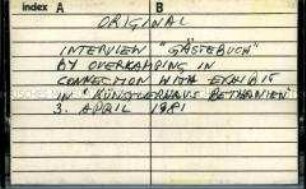 index A B
ORIGINAL
INTERVIEW "GÄSTEBUCH"
BY OVERKAMPING IN
CONNECTION WITH EXHIBIT
IN "KÜNSTLERHAUS BETHANIEN"
3. APRIL 1981